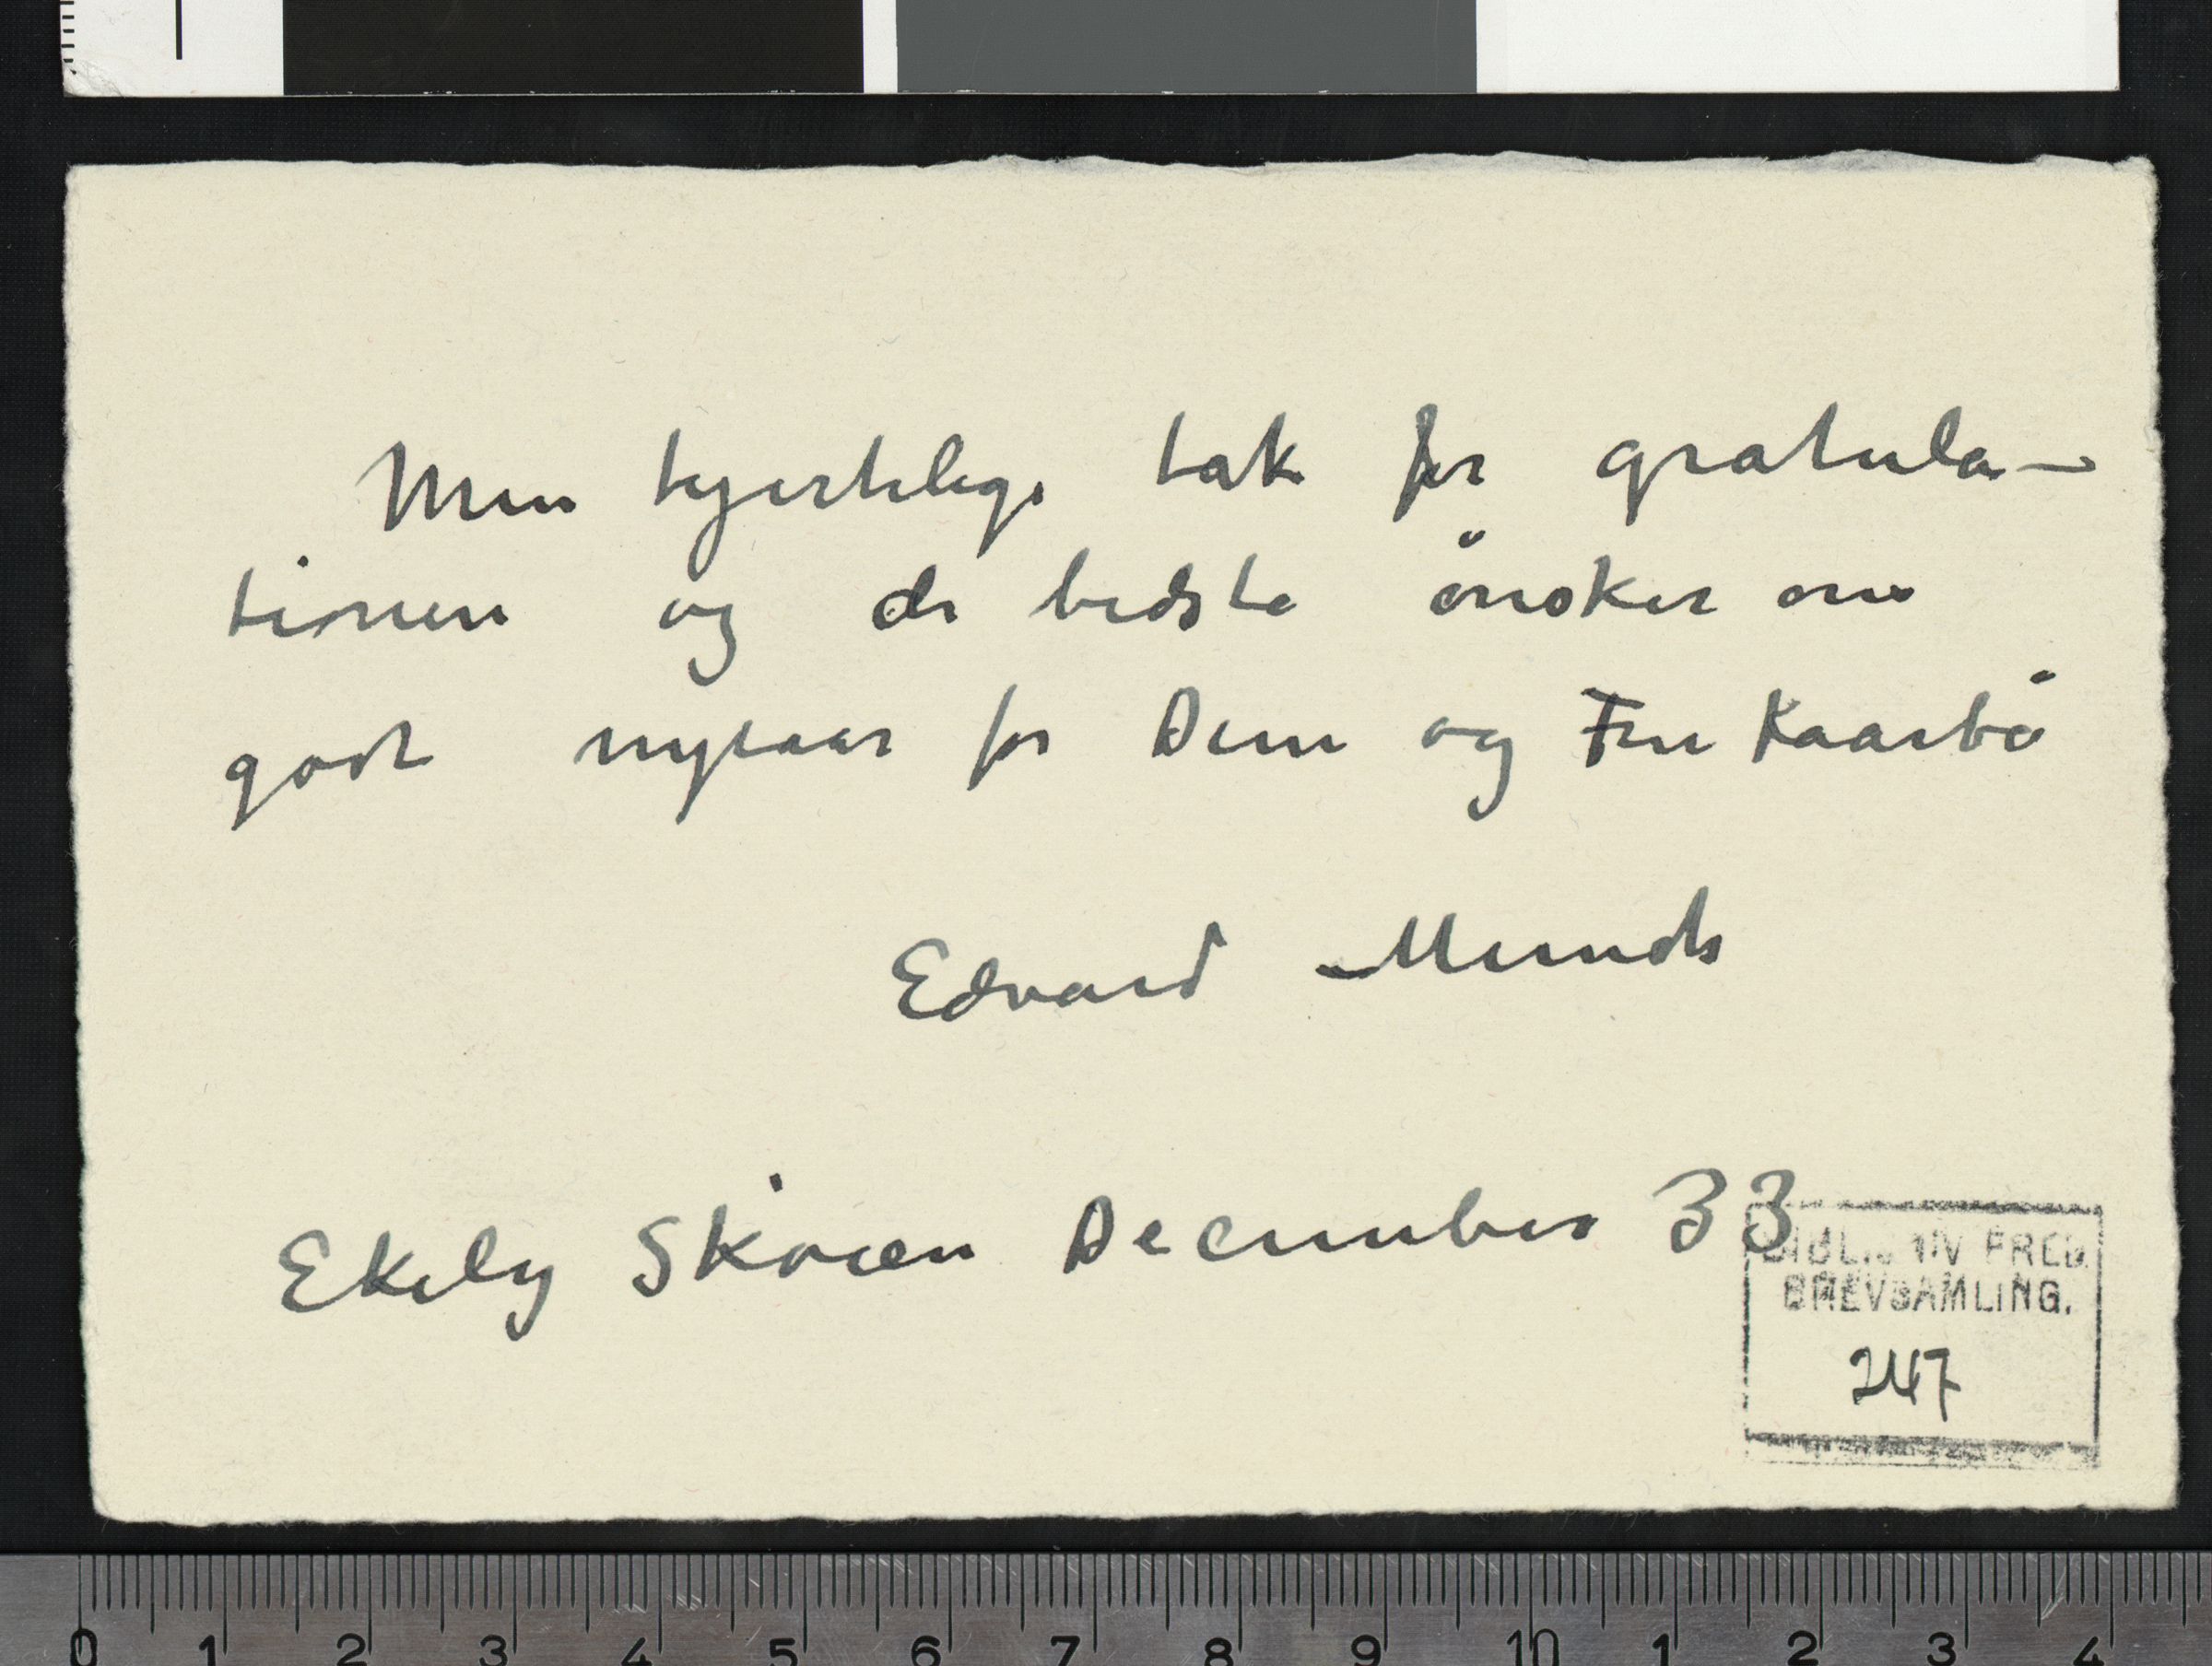 Min hjertelige tak for gratula–
tionen og de bedste ønsker om
godt nytaar for Dem og Fru Kaarbø
Edvard Munch
Ekely Skøien December 33
BREVSAMLING.
247
0 1 2 3 4 5 6 7 8 9 10 1 2 3 4